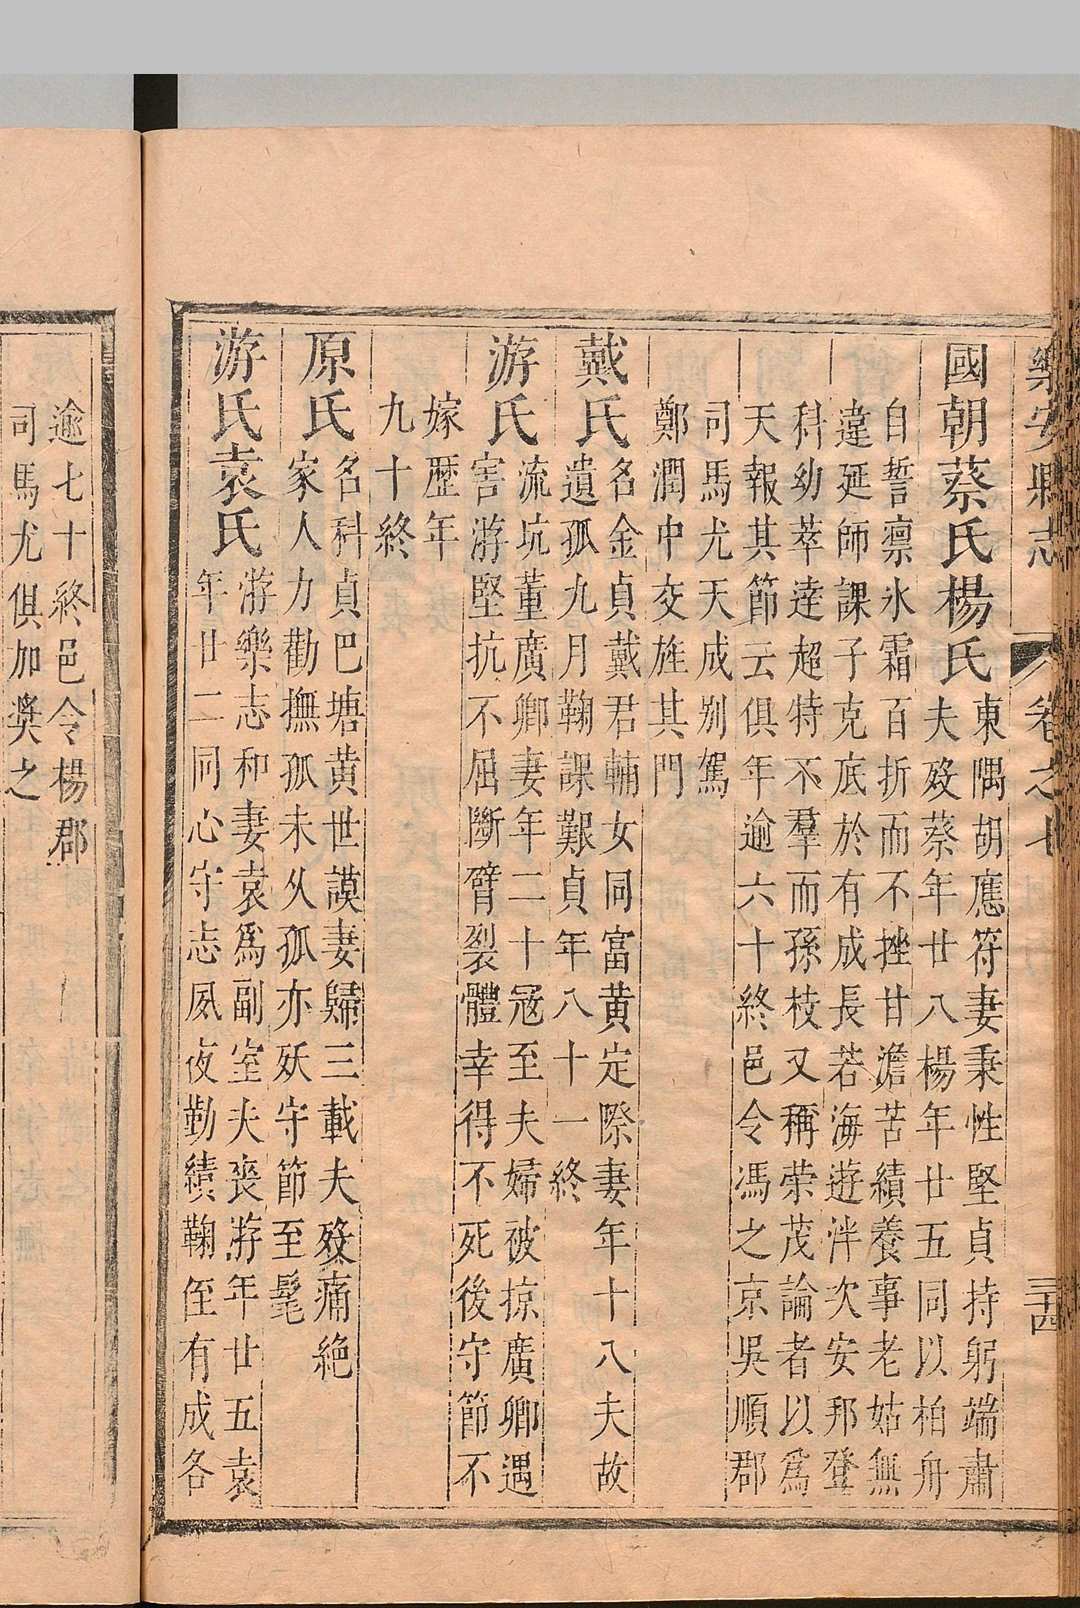 樂安縣志
卷之七
三十四
國朝蔡氏楊氏
東隅胡應符妻秉性堅貞持躬端肅
夫歿蔡年廿八楊年廿五同以柏舟
自誓禀氷霜百折而不挫甘澹苦績養事老姑無
違延師課子克底於有成長若海遊泮次安邦登
科幼萃逹超特不羣而孫枝又稱荣茂論者以爲
天報其節云俱年逾六十終邑令馮之京吳順郡
司馬尤天成别駕
鄭潤中交旌其門
戴氏
名金貞戴君輔女同富黄定際妻年十八夫故
遺孤九月鞠課艱貞年八十一終
游氏
流坑董廣卿妻年二十冦至夫婦被掠廣卿遇
害游堅抗不屈斷臂裂體幸得不死後守節不
嫁歷年
九十終
原氏
名科貞巴塘黄世謨妻歸三載夫歿痛絶
家人力勸撫孤未乆孤亦殀守節至髦
游氏袁氏
游樂志种妻袁爲副室夫喪游年廿五袁
年廿二同心守志夙夜勤績鞠侄有成各
逾七十終邑令楊郡
司馬尤俱加奬之